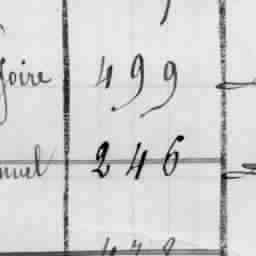 oire 499
nuel 246